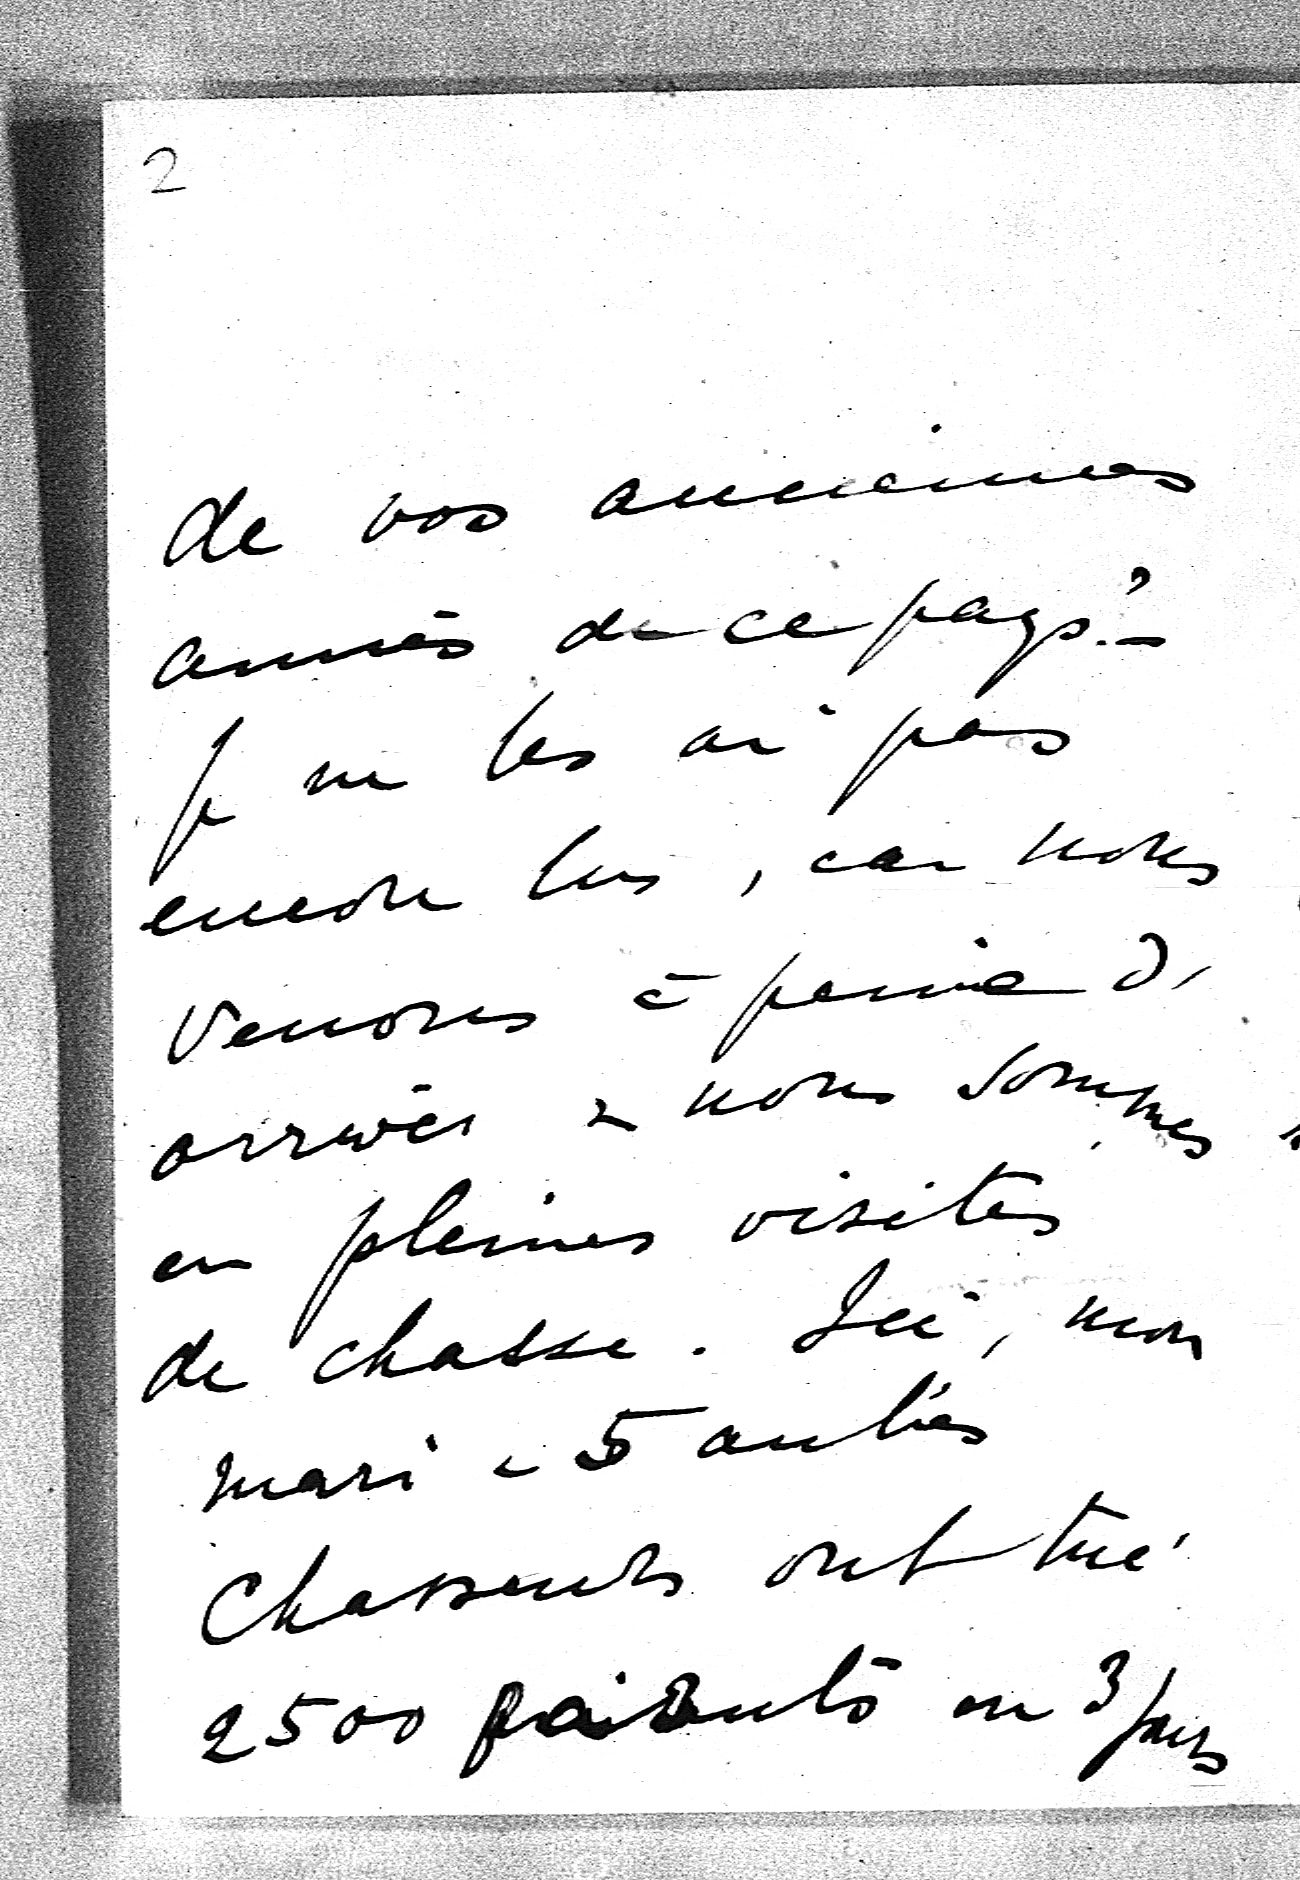 2
de vos anciennes
années de ce pays?
Je ne les ai pas
encore lus, car nous
venons à peine d'
arriver & nous sommes
en pleines visites
de chasse. Ici, mon
mari & 5 autres
chasseurs ont tué
2500 faisants en 3 jours